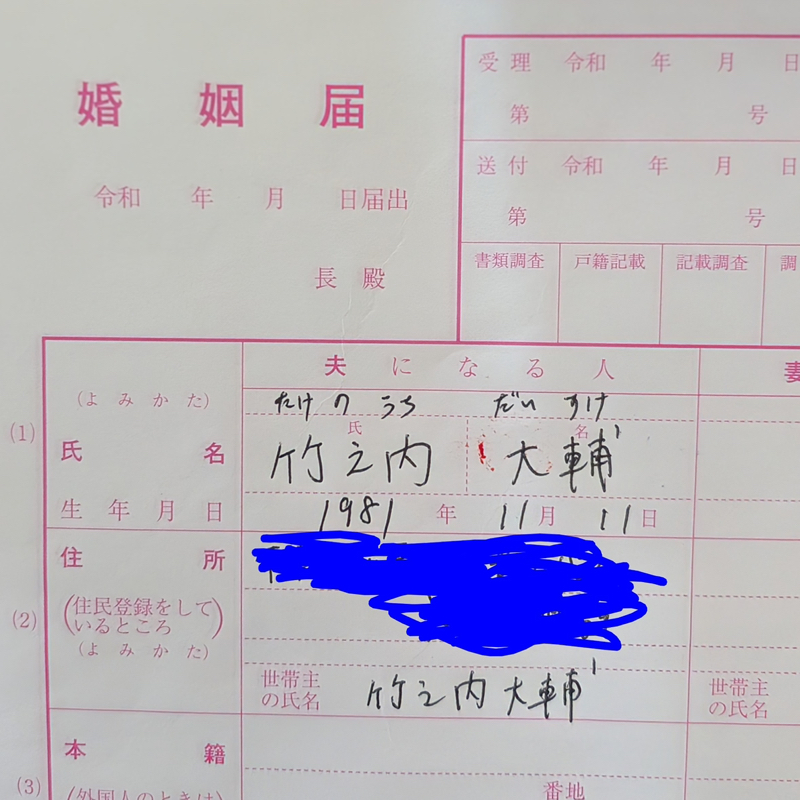 婚姻届
令和 年 月 日届出
長 殿
受理 令和 年 月 日
第 号
送付 令和 年 月 日
第 号
書類調査 戸籍記載 記載調査 調
夫になる人
妻
(よみかた) たけのうち だいすけ
(1)
氏 名
氏名 竹之内 大輔
生年月日 1981年 11月 11日
住所
(2)
(住民登録をして
いるところ)
(よみかた)
世帯主 竹之内大輔 世帯主
の氏名 の氏名
本籍
(3)
(外国人のときは
番地